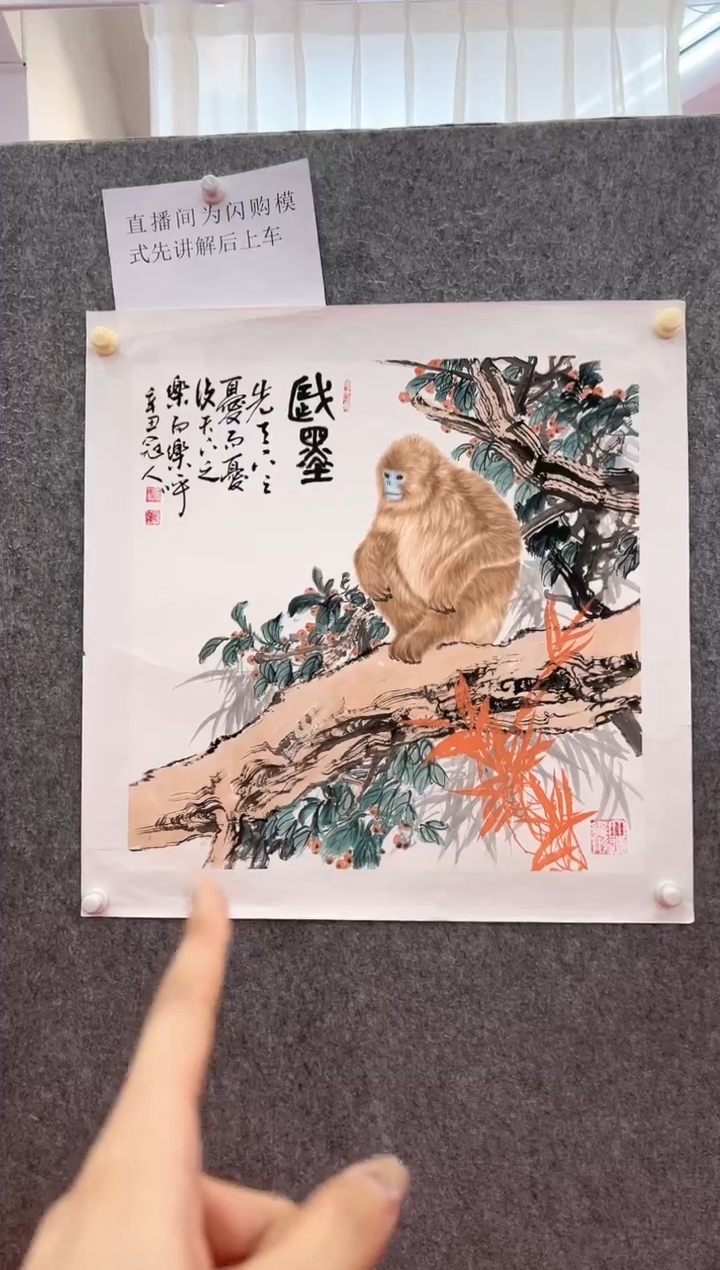 直播间为闪购模
式先讲解后上车
戲墨
先天下之
憂而憂
後天下之
樂而樂乎
辛丑冠人